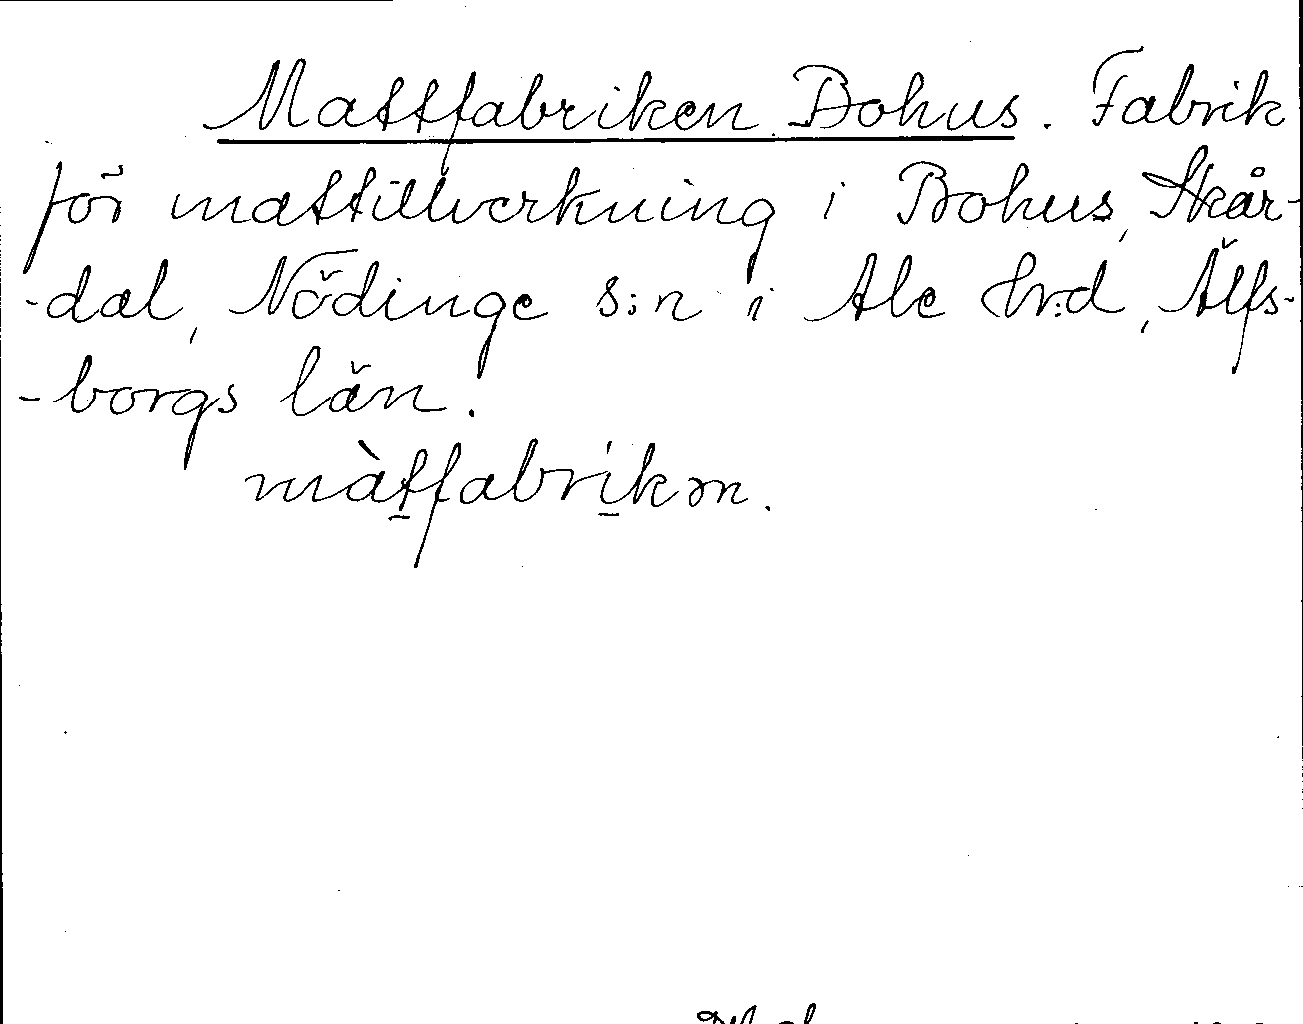 Mattfabriken Bohus. Fabrik
för mattillverkning i Bohus, Skår-
-dal, Nödinge s:n i Ale Hrd, Älfs-
-borgs län.
màtfabrikən.